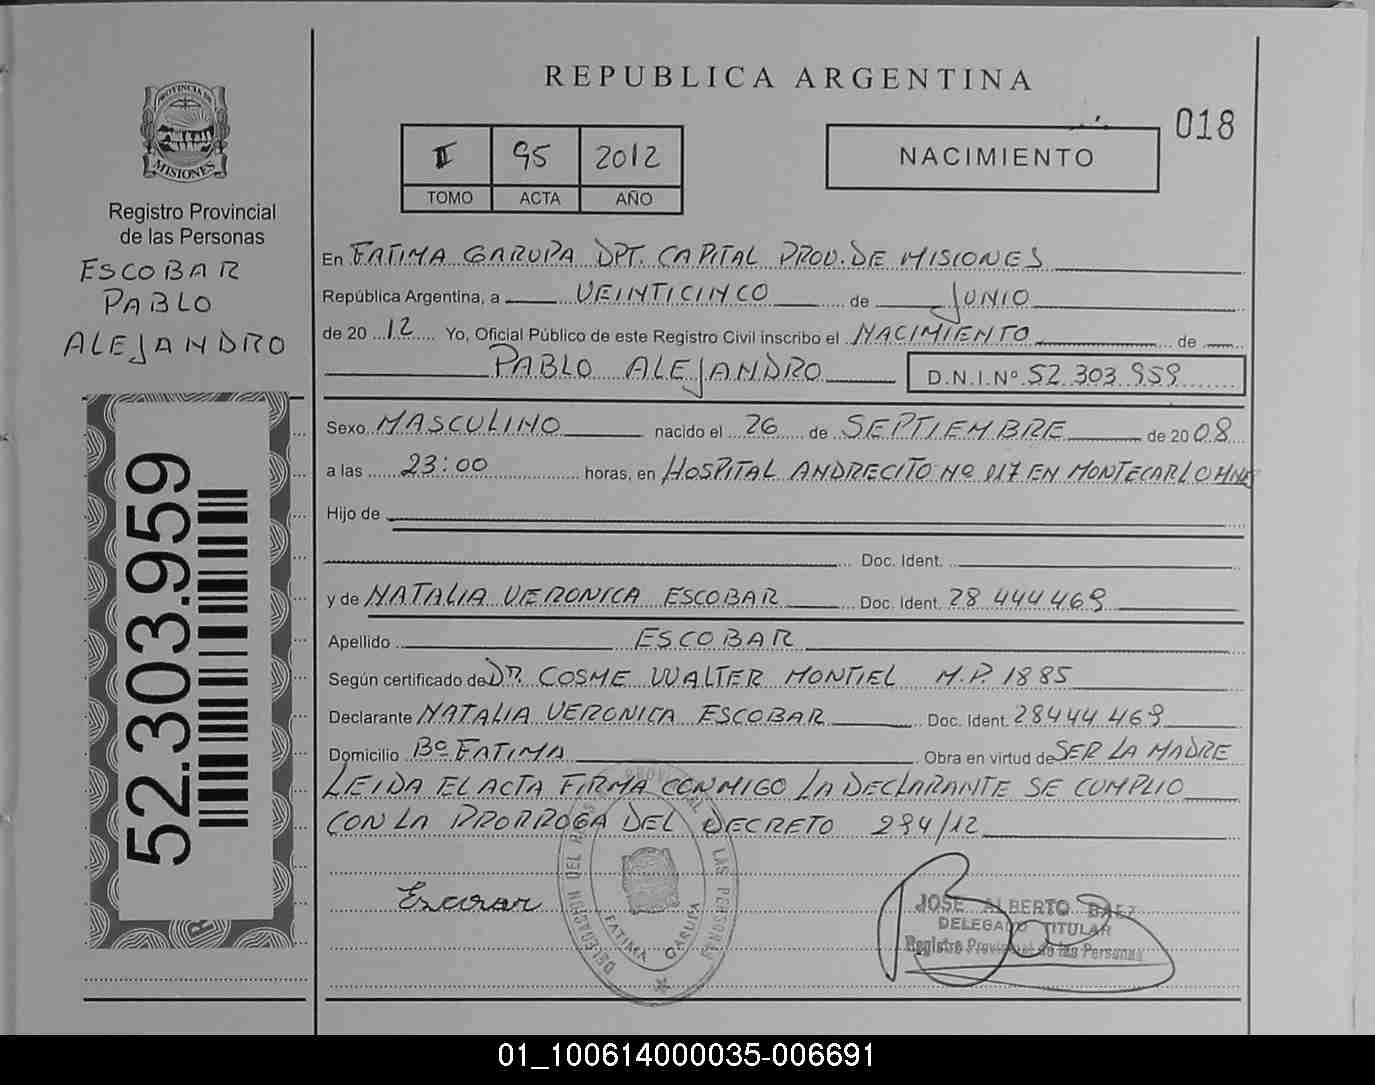 REPUBLICA ARGENTINA
018
PROVINCIA DE
MISIONES
Registro Provincial
de las Personas
ESCOBAR
PABLO
ALEJANDRO
52.303.959
II 95 2012
TOMO ACTA AÑO
NACIMIENTO
En FATIMA GARUPA DPT. CAPITAL PROV. DE MISIONES
República Argentina, a VEINTICINCO de JUNIO
de 20 12 Yo, Oficial Público de este Registro Civil inscribo el NACIMIENTO de
PABLO ALEJANDRO D.N.I.Nº 52.303.959
Sexo MASCULINO nacido el 26 de SEPTIEMBRE de 20 08
a las 23:00 horas, en HOSPITAL ANDRECITO Nº 017 EN MONTECARLO MNES
Hijo de
Doc. Ident.
y de NATALIA VERONICA ESCOBAR Doc. Ident. 28 444 469
Apellido ESCOBAR
Según certificado de Dr. COSME WALTER MONTIEL M.P. 1885
Declarante NATALIA VERONICA ESCOBAR Doc. Ident. 28444 469
Domicilio Bº FATIMA Obra en virtud de SER LA MADRE
LEIDA EL ACTA FIRMA CONMIGO LA DECLARANTE SE CUMPLIO
CON LA PRORROGA DEL DECRETO 294/12
Escobar
FATIMA GARUPA
JOSE ALBERTO BAEZ
DELEGADO TITULAR
Registro Provincial de las Personas
01_100614000035-006691